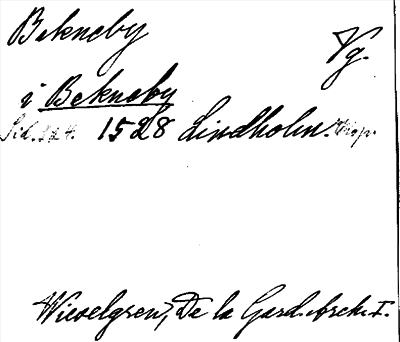 Bekneby
Vg.
i Bekneby
1528 Lindholm.
Wieselgren, De la Gard. arch. I.